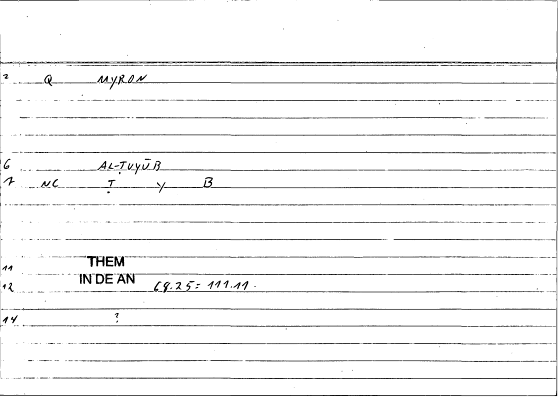 2 Q MYRON
6 AL-ṬUYŪB
7 NC Ṭ Y B
11 THEM
12 IN DE AN 69.25 = 111.11.
14 ?